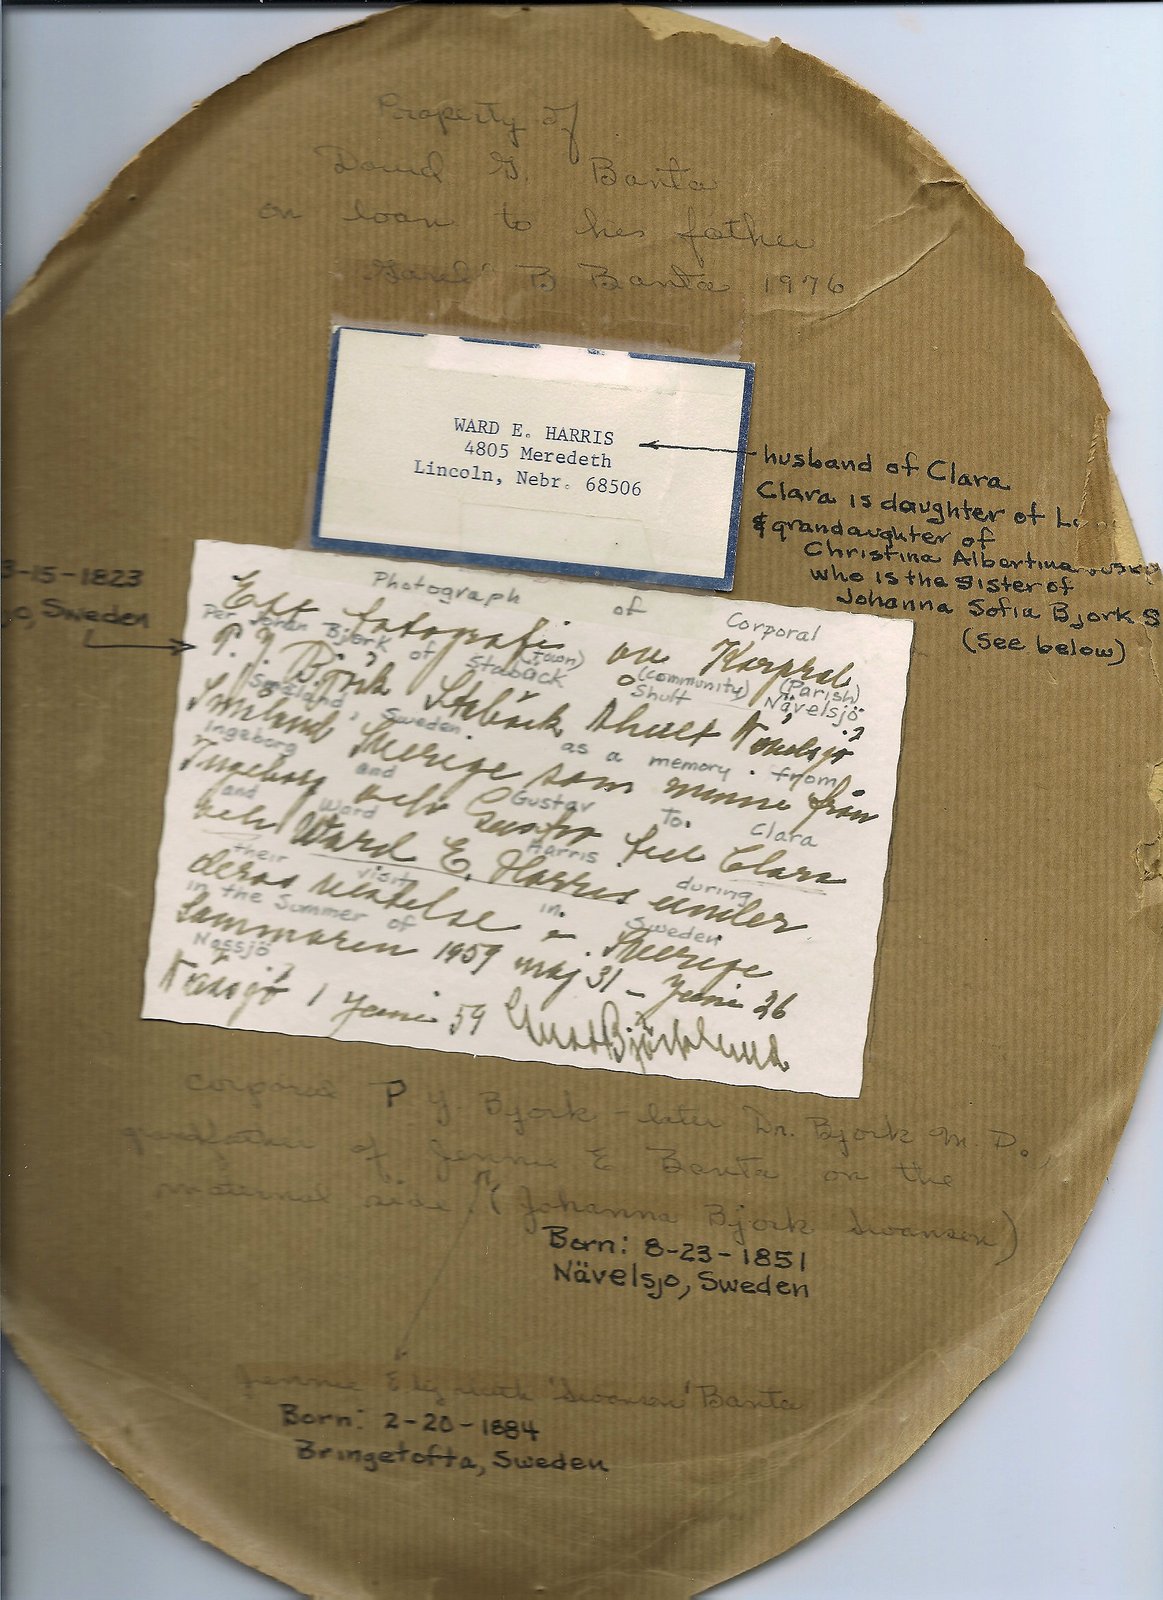 Property of
David G. Banta
on loan to his father
B Banta 1976
WARD E. HARRIS
4805 Meredeth
Lincoln, Nebr. 68506
husband of Clara
Clara is daughter of
& grandaughter of
Christina Albertina
who is the sister of
Johanna Sofia Bjork S
(See below)
3-15-1823
o, Sweden
Photograph of Corporal
Ett fotografi av Korpral
Per Johan Bjork of (Town) Stabäck (community) Shult (Parish) Nävelsjö
P. J. Björk Stabäck Shult Näv
Småland, Sweden as a memory from
Småland Sverige som minne från
Ingeborg and Gustav To: Clara
Ingeborg och Gustav till Clara
and Ward Harris during
och Ward E. Harris under
their visit in Sweden
deras vistelse i Sverige
in the Summer of
Sommaren 1959 maj 31 - Juni 26
Nassjö
1 Juni 59 Gust Björklund
corporal P J. Bjork - later Dr. Bjork M. D.
grandfather of Jennie E Banta on the
maternal side (Johanna Bjork Swanson)
Born: 8-23-1851
Nävelsjo, Sweden
Jennie Elizabeth 'Swanson' Banta
Born: 2-20-1884
Bringetofta, Sweden